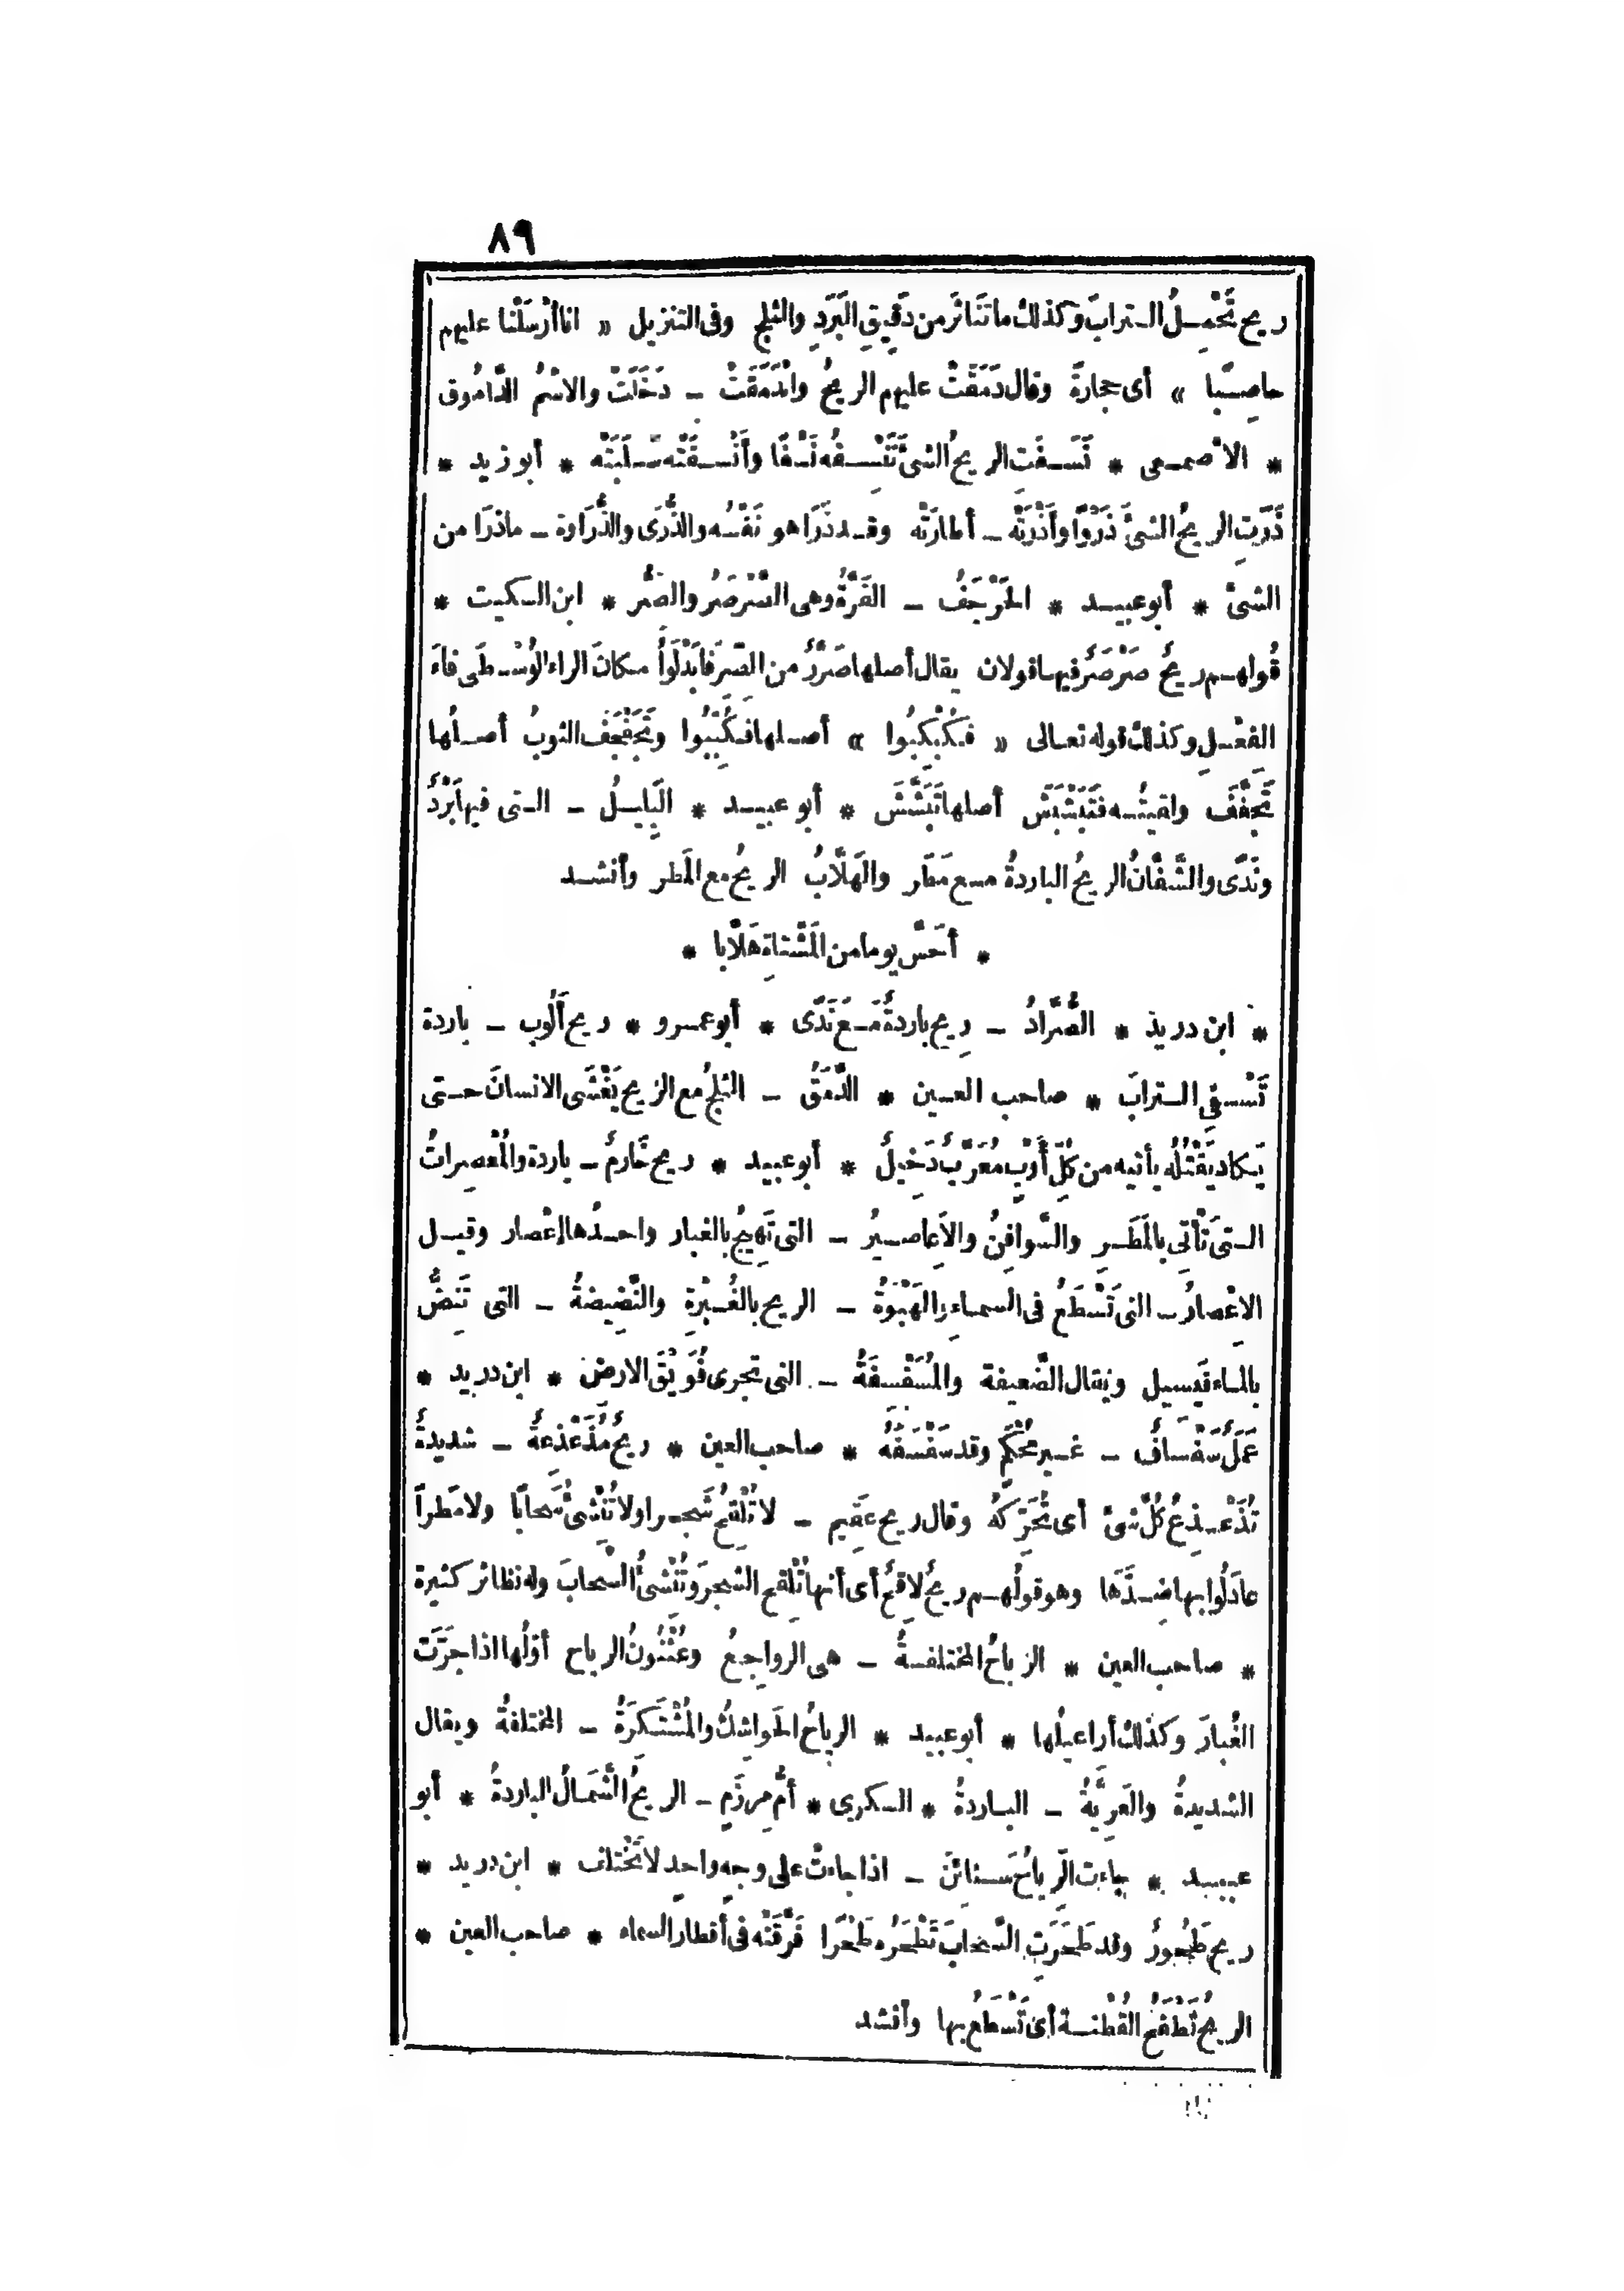 ٨٩
ريح تَحْمِلُ الترابَ وكذلك ما تَنَاثَر من دَقِيقِ البَرَدِ والثلج وفى التنزيل « انا أَرْسَلْنا عليهم
حاصِبًا » أى حجارةً وقال دَمَقَتْ عليهم الريحُ وانْدَمَقَتْ ــ دَخَلَتْ والاسْمُ الدَّامُوق
* الاصمعى * نَسَفَت الريحُ الشئَ تَنْسِفُه نَسْفًا وأَنْسَفَتْه سَلَبَتْه * أبو زيد *
ذَرَتِ الريحُ الشئَ ذَرْوًا وأَذْرَتْه ــ أطارَتْه وقد ذَرَا هو نَفْسُه والذُّرَى والذُّرَاوة ــ ماذَرَا من
الشئ * أبو عبيد * الحَرْجَفُ ــ القَرَّةُ وهى الصَّرْصَرُ والصِّرُّ * ابن السكيت *
قُولهم ريحٌ صَرْصَرٌ فيها قولان يقال أصلها صَرَّرٌ من الصِّرّ فأَبْدَلُوا مكانَ الراء الوُسْطَى فاءَ
الفِعْلِ وكذلك قوله تعالى « فَكُبْكِبُوا » أصلها فكُبِّبُوا وتَجَفْجَفَ الثوبُ أصلُها
تَجَفَّفَ ولقيتُه فتَبَشْبَشَ أصلها تَبَشَّشَ * أبو عبيد * البَلِيلُ ــ التى فيها بَرْدٌ
ونَدًى والشَّفَّانُ الريحُ الباردةُ مع مَطَر والهَلَّابُ الريحُ مع المَطر وأنشد
* أحَسَّ يوما من المَشْتاةِ هَلَّابا *
* ابن دريد * الصُّرَّادُ ــ رِيح باردةٌ مَعَ نَدًى * أبو عمرو * ريح أَلُوب ــ باردة
تَسْفِى الترابَ * صاحب العين * الدَّمَقُ ــ الثلجُ مع الريح يَغْشَى الانسانَ حتى
يَكاد يَقْتُلُه يأتيه من كُلِّ أَوْبٍ مُعَرَّبٌ دَخِيلٌ * أبو عبيد * ريح خَارِمٌ ــ باردة والمُعْصِراتُ
التى تَأْتِى بالمَطَرِ والسَّوافِنُ والاَعاصِيرُ ــ التى تَهِيجُ بالغبار واحدُها إعْصار وقيل
الاِعْصارُ ــ التى تَسْطَعُ فى السماءِ والهَبْوَةُ ــ الريح بالغُبْرةِ والنَّضِيضةُ ــ التى تَنِضُّ
بالماء فَيَسِيل ويقال الضَّعيفة والمُسَفْسِفَةُ ــ التى تجرى فُوَيْقَ الارض * ابن دريد *
عَمَلٌ سَفْسافٌ ــ غير مُحْكَمٍ وقد سَفْسَفَهُ * صاحب العين * ريحٌ مُذَعْذِعةٌ ــ شديدةٌ
تُذَعْذِعُ كُلَّ شئ أى تُحَرِّكُه وقال ريح عَقِيم ــ لا تُلْقِحُ شَجرا ولا تُنْشِئُ سَحابًا ولا مَطراً
عادَلُوا بها ضِدَّها وهو قولُهم ريحٌ لاقِحٌ أى أنها تُلْقِح الشجرَ وتُنْشِئُ السَّحابَ وله نظائر كثيرة
* صاحب العين * الرِّياحُ المختلفةُ ــ هى الرواجِعُ وعُثْنُونُ الرياح أوّلُها اذا جَرَّتْ
الغُبارَ وكذلك أراعِيلُها * أبو عبيد * الرياحُ الحَواشِكُ والمُشْتَكرَةُ ــ المختلفةُ ويقال
الشديدةُ والعَرِيَّةُ ــ الباردةُ * السكرى * أُمُّ مِرزَمٍ ــ الريحُ الشَّمَالُ الباردةُ * أبو
عبيد * جاءت الرِّياحُ سَنائِنَ ــ اذا جاءتْ على وجهٍ واحدٍ لا تَخْتلف * ابن دريد *
ريح طَحُورٌ وقد طَحَرَتِ السَّحابَ تَطْحَرُه طَحْرًا فَرَّقَتْه فى أقطار السماء * صاحب العين *
الريحُ تَطْفَحُ القُطْنة أى تَسْطَعُ بها وأنشد